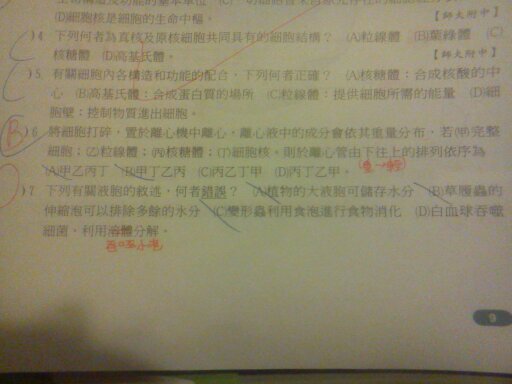 (D)細胞核是細胞的生命中樞。
【師大附中】
)4 下列何者為真核及原核細胞共同具有的細胞結構? (A)粒線體 (B)葉綠體 (C)
核糖體 (D)高基氏體。 【師大附中】
)5 有關細胞內各構造和功能的配合,下列何者正確? (A)核糖體:合成核酸的中
心 (B)高基氏體:合成蛋白質的場所 (C)粒線體:提供細胞所需的能量 (D)細
胞壁:控制物質進出細胞。
B )6 將細胞打碎,置於離心機中離心,離心液中的成分會依其重量分布,若(甲)完整
細胞;(乙)粒線體;(丙)核糖體;(丁)細胞核。則於離心管由下往上的排列依序為
(A)甲乙丙丁 (B)甲丁乙丙 (C)丙乙丁甲 (D)丙丁乙甲。
重→輕
)7 下列有關液胞的敘述,何者錯誤? (A)植物的大液胞可儲存水分 (B)草履蟲的
伸縮泡可以排除多餘的水分 (C)變形蟲利用食泡進行食物消化 (D)白血球吞噬
細菌,利用溶體分解。
9